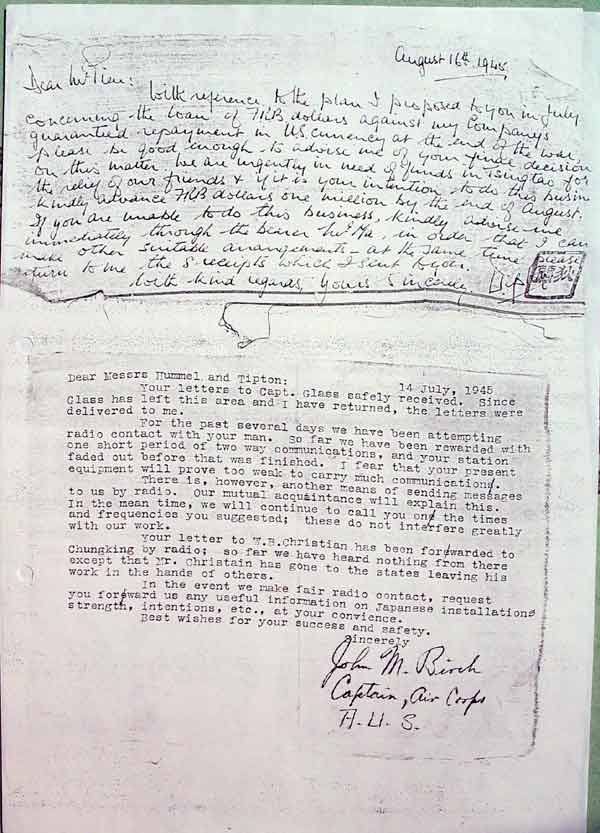 August 16th 1945
Dear Mr Tien:
With reference to the plan I proposed to you in July
concerning the loan of FRB dollars against my company's
guarantied repayment in U.S. currency at the end of the war,
please be good enough to advise me of your final decision
on this matter. We are urgently in need of funds in Tsingtao for
the relief of our friends & if it is your intention to do this busin
kindly advance FRB dollars one million by the end of August.
If you are unable to do this business, kindly advise me
immediately through the bearer Mr. Ma, in order that I can
make other suitable arrangements – at the same time please
return to me the 8 receipts which I sent to you.
With kind regards, Yours Sincere
Dear Messrs Hummel and Tipton:
14 July, 1945
Your letters to Capt. Glass safely received. Since
Glass has left this area and I have returned, the letters were
delivered to me.
For the past several days we have been attempting
radio contact with your man. So far we have been rewarded with
one short period of two way communications, and your station
faded out before that was finished. I fear that your present
equipment will prove too weak to carry much communications.
There is, however, another means of sending messages
to us by radio. Our mutual acquaintance will explain this.
In the mean time, we will continue to call you on the times
and frequencies you suggested; these do not intefere greatly
with our work.
Your letter to W.B.Christian has been foreward to
Chungking by radio; so far we have heard nothing from there
except that Mr. Christain has gone to the states leaving his
work in the hands of others.
In the event we make fair radio contact, request
you foreward us any useful information on Japanese installations
strength, intentions, etc., at your convience.
Best wishes for your success and safety.
Sincerely
John M. Birch
Captain, Air Corps
A.U.S.